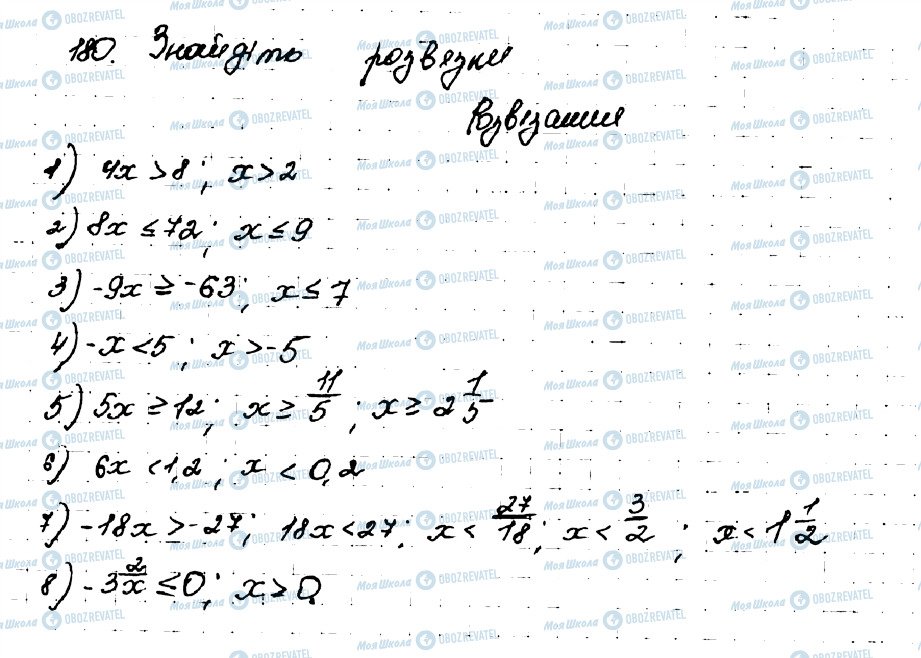 180. Знайдіть розвязки
Розвізання
1) 4x > 8; x > 2
2) 8x ≤ 72; x ≤ 9
3) -9x ≥ -63; x ≤ 7
4) -x < 5; x > -5
5) 5x ≥ 12; x ≥ 11/5; x ≥ 2 1/5
6) 6x < 1,2; x < 0,2
7) -18x > -27; 18x < 27; x < 27/18; x < 3/2; x < 1 1/2
8) -3 2/x ≤ 0; x > 0